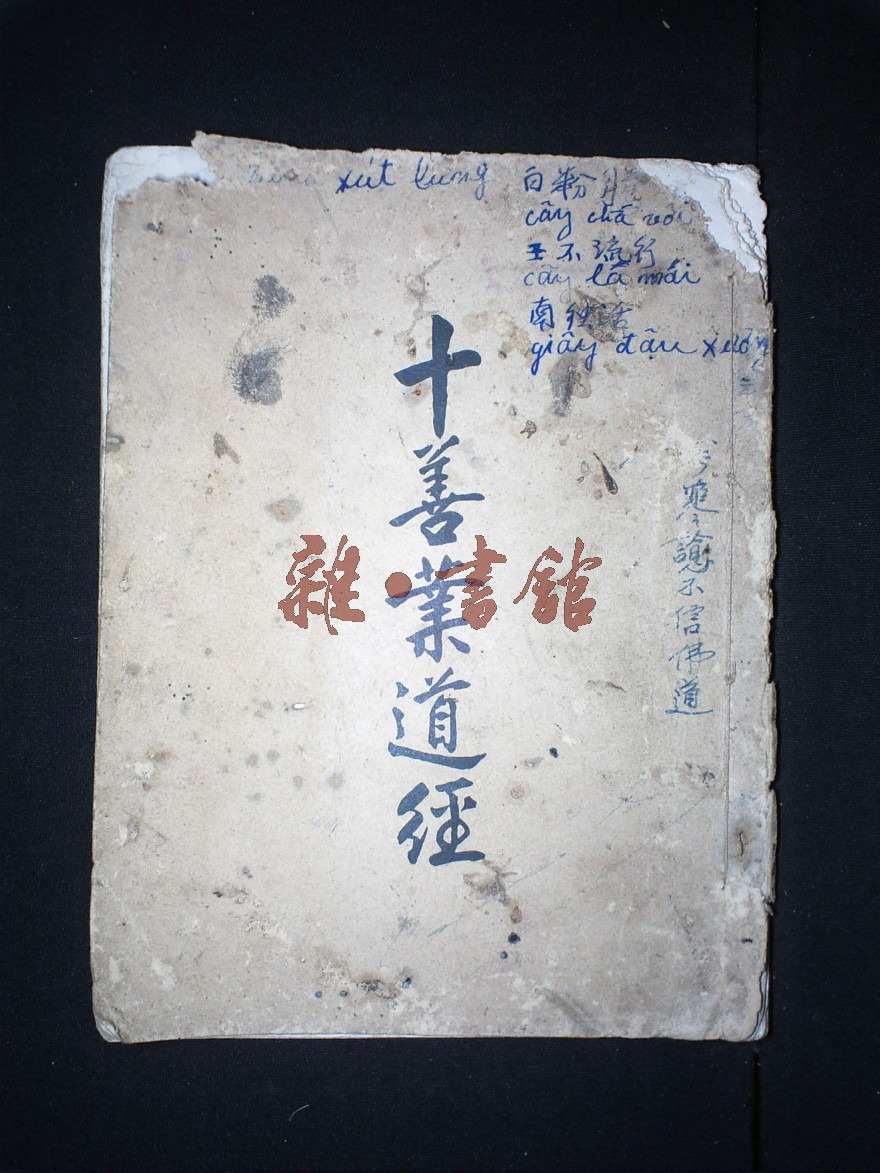 xút lưng
白粉
cây chá vôi
王不流行
cây lá mái
南
giây đậu xương
十善業道經
雜·書館
不信佛道